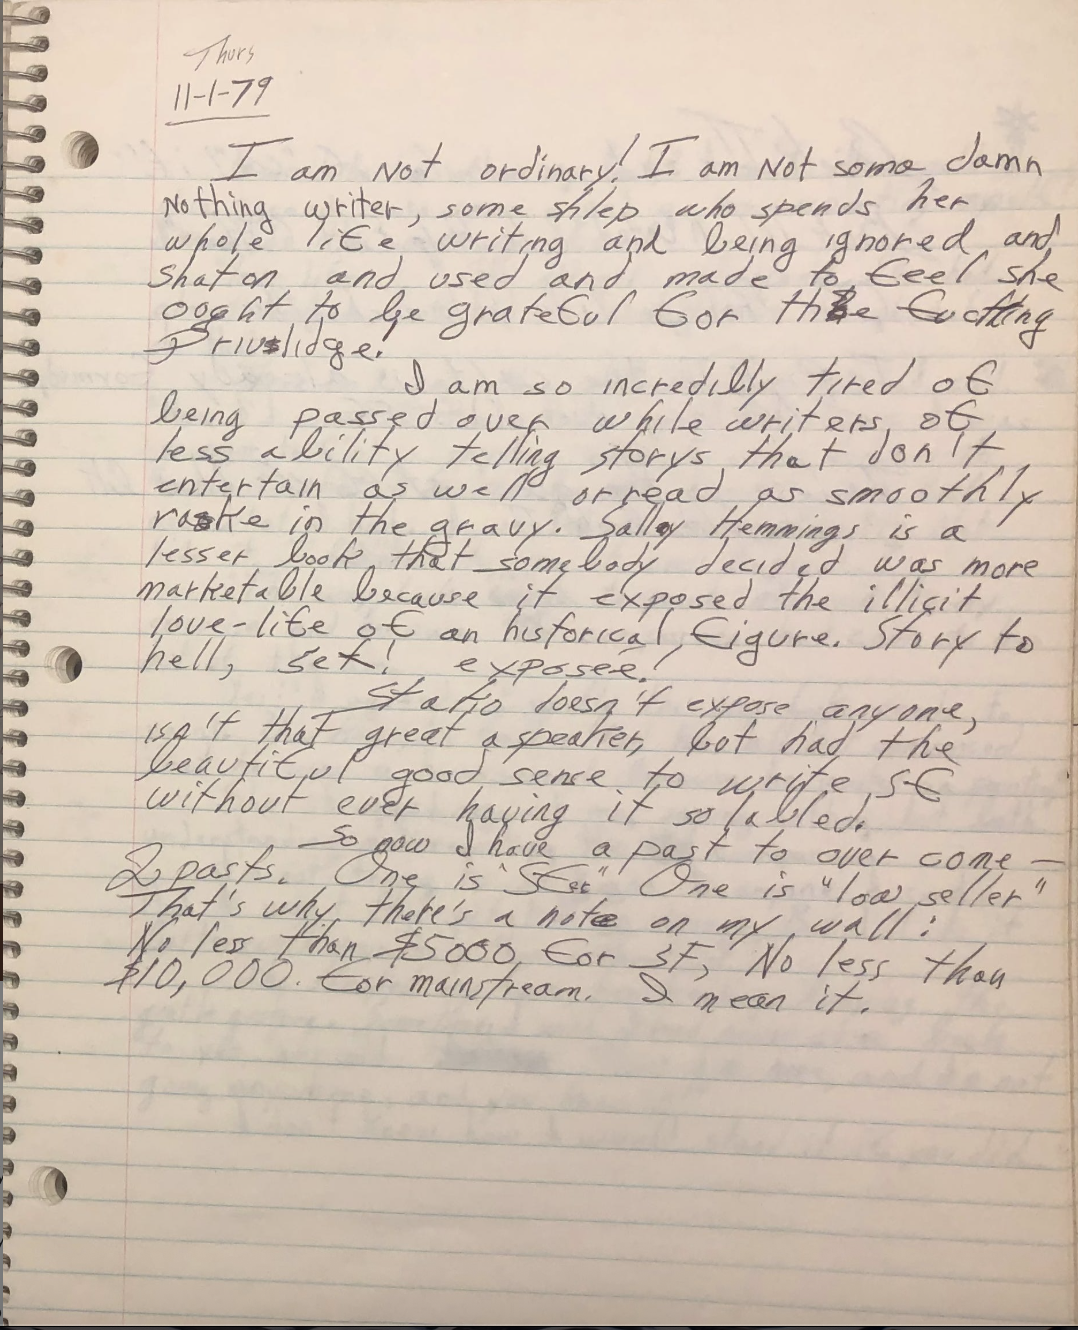 Thurs
11-1-79
I am Not ordinary! I am Not some damn
Nothing writer, some shlep who spends her
whole life writing and being ignored and
shat on and used and made to feel she
ought to be grateful for the fucking
Privslidge!
I am so incredilly tired of
being passed over while writers of
less ability telling storys that don't
entertain as well or read as smoothly
rake in the gravy. Sally Hemmings is a
lesser book that somebody decided was more
marketable because it exposed the illicit
love-life of an historical figure. Story to
hell, sex! exposeé!
doesn't expose anyone,
isn't that great a speaker, but had the
beautiful good sense to write SF
without ever having it so labled.
So now I have a past to over come —
2 pasts. One is "SFer" One is "low seller"
That's why there's a note on my wall:
No less than $5000 for SF, No less than
$10,000. for mainstream. I mean it.